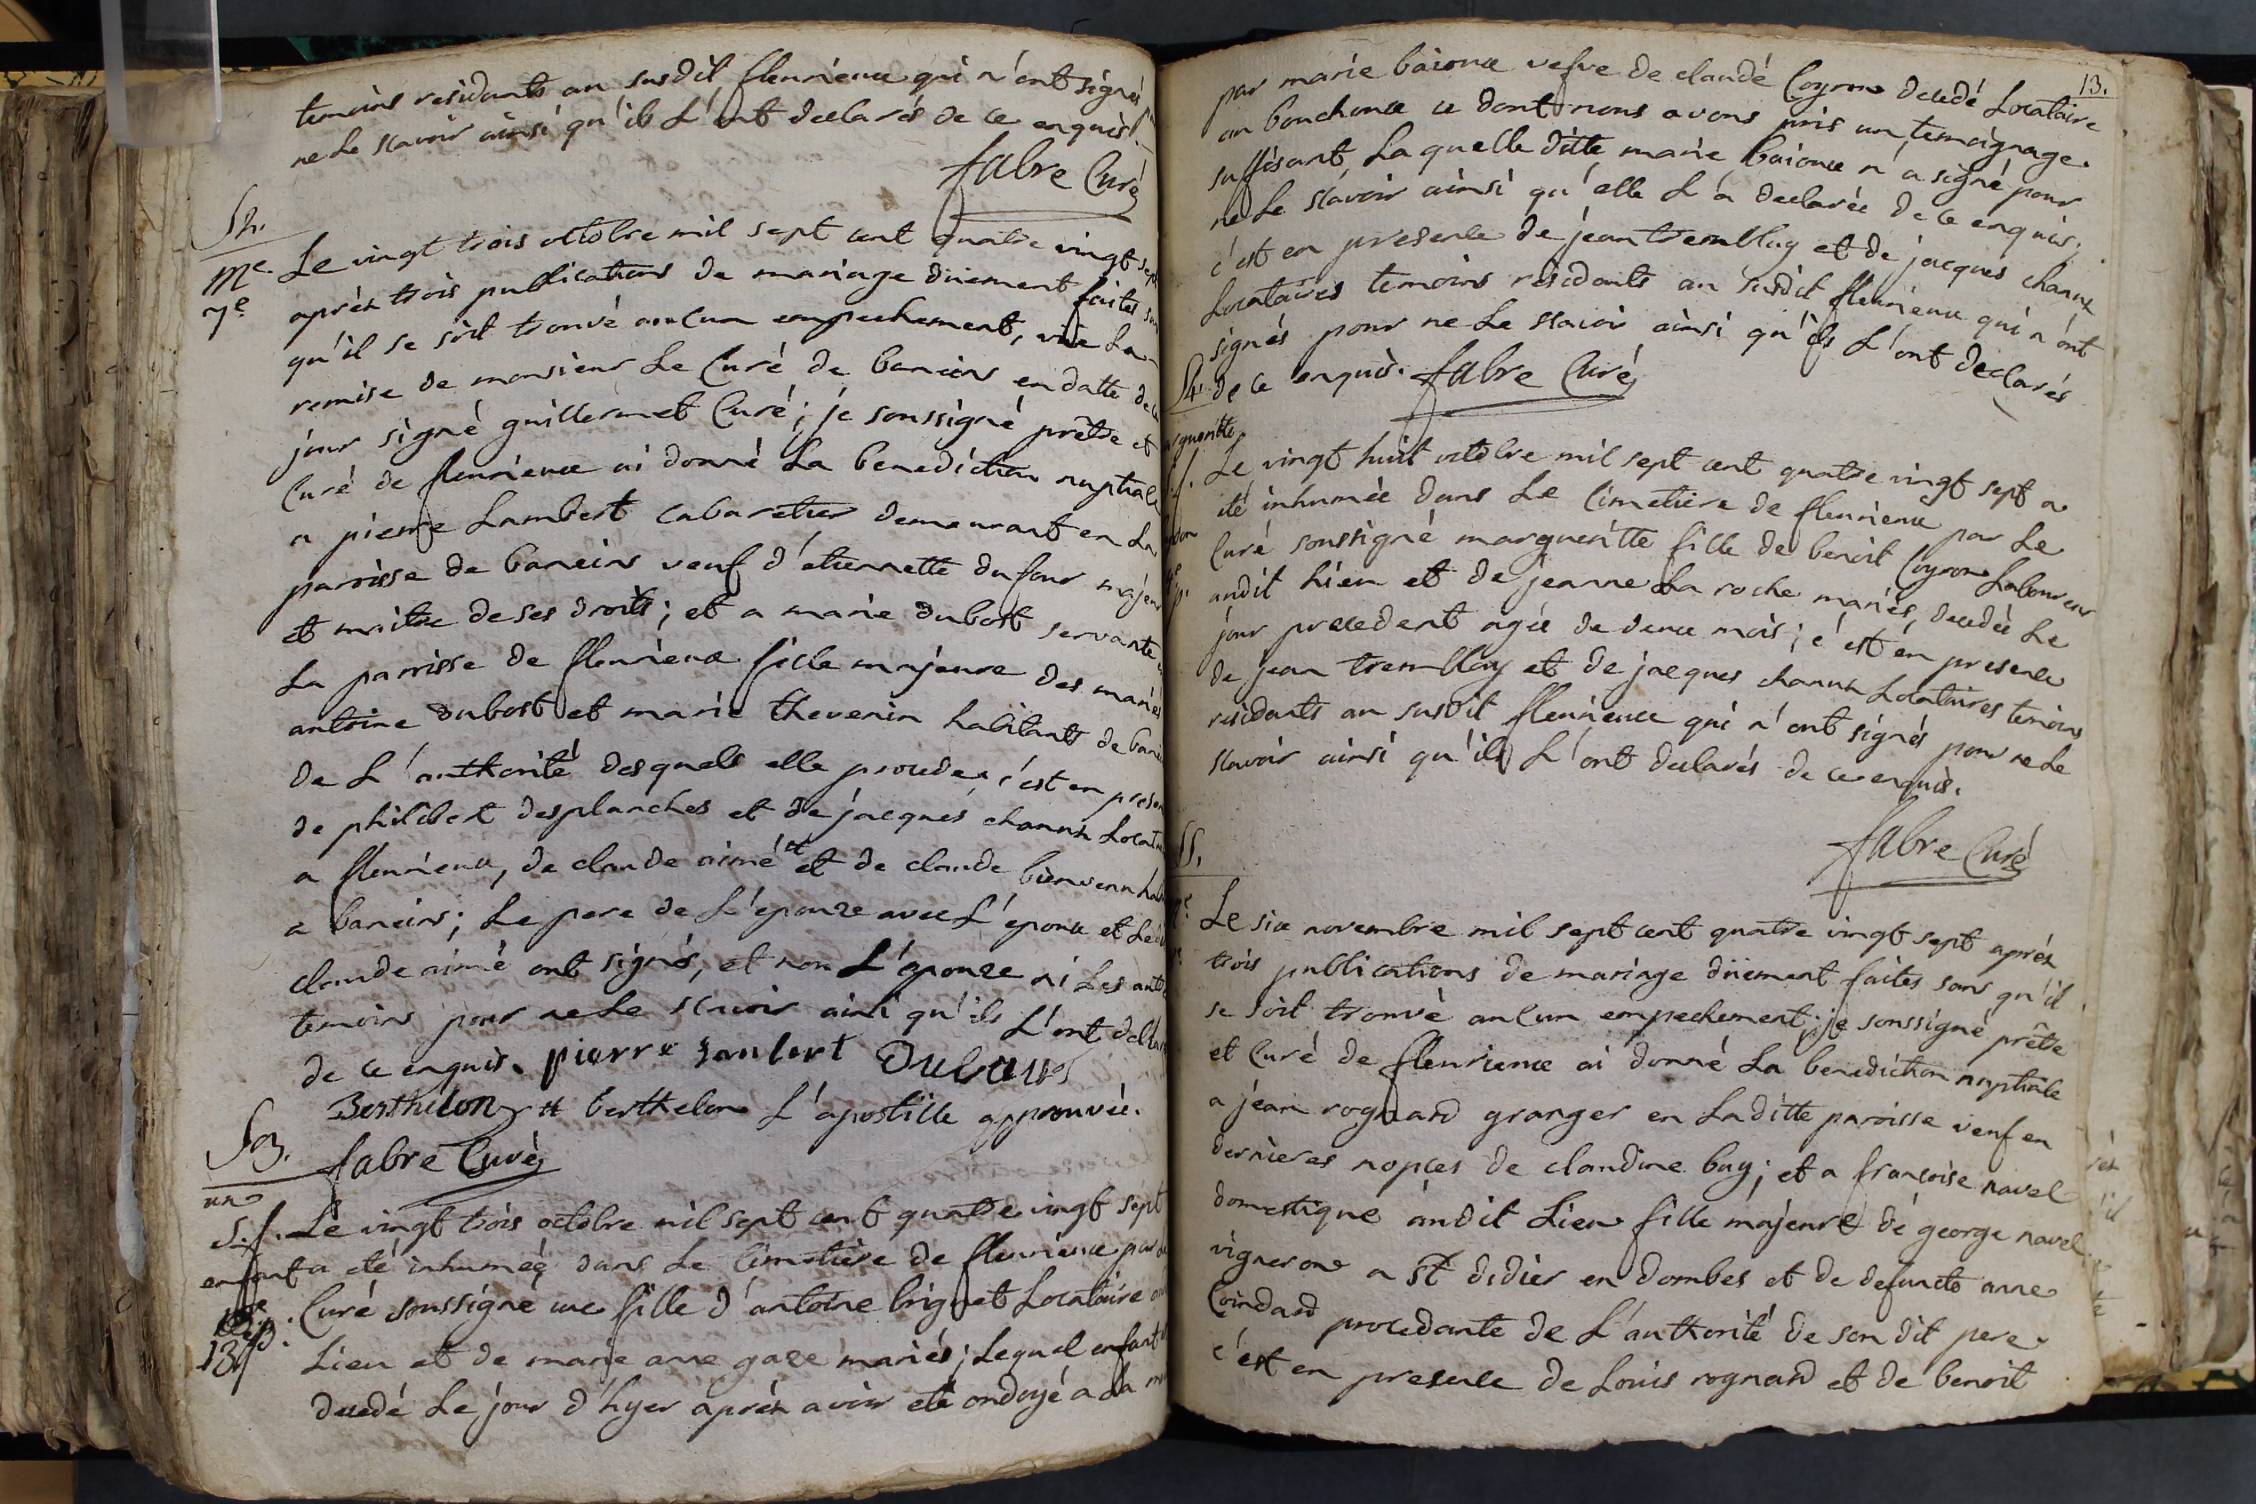 temoins residants au susdit fleurieux qui n'ont signés
ne le scavoir ainsi qu'ils L'ont declarés de ce enquis.
fabre Curé
52.
Me. Le vingt trois octobre mil sept cent quatre vingt sept
7e après trois publications de mariage düement faites
qu'il se soit trouvé aucun empechement, vüe La
remise de monsieur Le Curé de baneins en datte de ce
jour signé guillermet Curé; je soussigné prêtre et
Curé de fleurieux ai donné La benediction nuptiale
a pierre Lambert cabaretier demeurant en La
paroisse de baneins veuf d'etiennette dufour majeur
et maitre de ses droits; et a marie dubost servante
La paroisse de fleurieux fille majeure des mariés
antoine dubost et marie thevenin habitants de
de L'authorité desquels elle procede, c'est en
de philibert desplanches et de jacques
a fleurieux, de claude aimé # et de claude bienvenu
a baneins; Le pere de L'epouze avec L'epoux et Le
claude aimé ont signés, et non L'epouze ni Les
temoins pour ne Le scavoir ainsi qu'ils L'ont
de ce enquis. pierre Lanbert
Berthélon # berthelon L'apostille approuvée.
53. fabre Curé
un
s.f. Le vingt trois octobre mil sept cent quatre vingt sept
enfant a eté inhumée dans Le Cimetière de fleurieux par
Curé soussigné une fille d'antoine brignet Locataire
Lieu et de marie anne gaze mariés; Lequel enfant
decedé Le jour d'hyer après avoir eté ondoyé a La
13.
par marie baioux vefve de claude Coyron decedé Locataire
au bouchoux ce dont nous avons pris un temoignage
suffisant, La quelle ditte marie baioux n'a signé pour
ne Le scavoir ainsi qu'elle L'a declarée de ce enquis;
c'est en presence de jean tremblay et de jacques
Locataires temoins residants au susdit fleurieux qui n'ont
signés pour ne Le scavoir ainsi qu'ils L'ont declarés
54. de ce enquis. fabre Curé
Le vingt huit octobre mil sept cent quatre vingt sept a
été inhumée dans Le Cimetiere de fleurieux par Le
Curé soussigné margueritte fille de benoit Coyron Laboureur
audit Lieu et de jeanne La roche mariés, decedée Le
jour precedent agée de deux mois; c'est en presence
de jean tremblay et de jacques Locataires temoins
residants au susdit fleurieux qui n'ont signés pour ne Le
scavoir ainsi qu'ils L'ont declarés de ce enquis.
fabre Curé
55.
Le six novembre mil sept cent quatre vingt sept après
trois publications de mariage düement faites sans qu'il
se soit trouvé aucun empechement; je soussigné prêtre
et Curé de fleurieux ai donné La benediction nuptiale
a jean rognard granger en La ditte paroisse veuf en
dernieres nopces de claudine buy; et a françoise navel
domestique audit Lieu fille majeure de george navel
vigneron a St didier en dombes et de defuncte anne
Coindard procedante de L'authorité de son dit pere.
c'est en presence de Louis rognard et de benoit